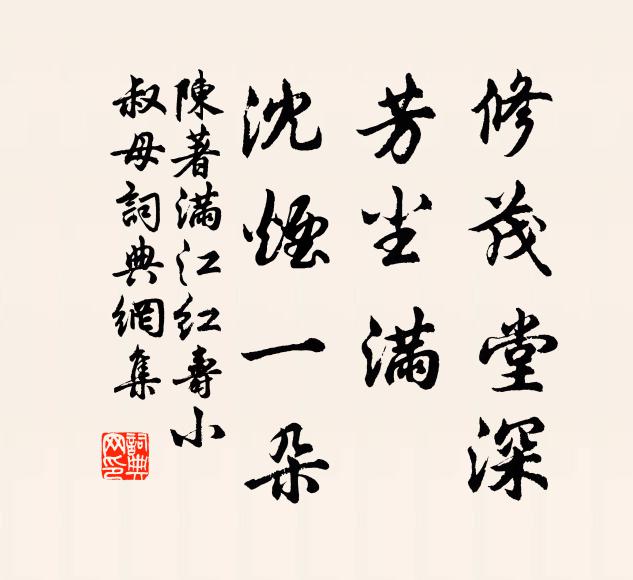 修茂堂深
芳尘滿
沈煙一朵
陳著滿江红壽小
叔母詞典網集
詞典网印